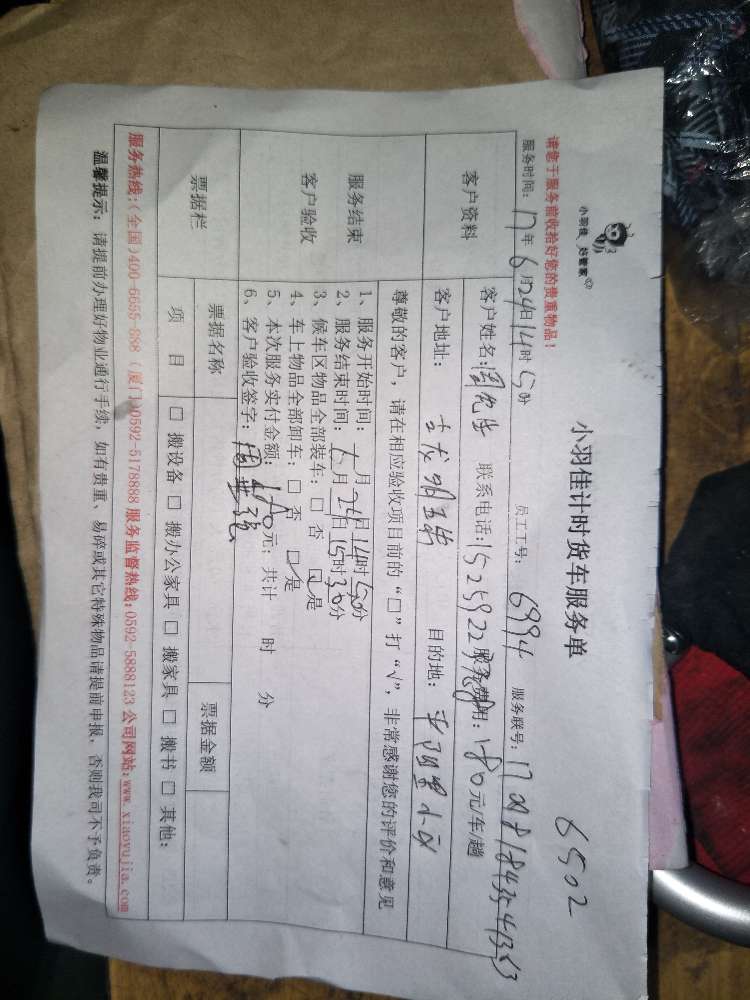 小羽佳 好管家
小羽佳计时货车服务单
6502
请您于服务前收拾好您的贵重物品！
服务时间：17年6月24日14时50分 员工工号：6994 服务联号：
客户资料
客户姓名：周 联系电话：1525922 服务费用：180元/车/趟
客户地址： 目的地：
服务结束
客户验收
尊敬的客户，请在相应验收项目前的“□”打“√”，非常感谢您的评价和意见
1、服务开始时间：6月24日14时50分
2、服务结束时间：6月24日15时30分
3、候车区物品全部装车：□ 否 ☑是
4、车上物品全部卸车：□ 否 ☑是
5、本次服务实付金额：180元；共计 时 分
6、客户验收签字：周
票据栏
票据名称 票据金额
项 目 □ 搬设备 □ 搬办公家具 □ 搬家具 □ 搬书 □ 其他：
服务热线：（全国）400-6655-888（厦门）0592-5178888 服务监督热线：0592-5888123 公司网站：www.xiaoyujia.com
温馨提示：请提前办理好物业通行手续，如有贵重、易碎或其它特殊物品请提前申报，否则我司不予负责。